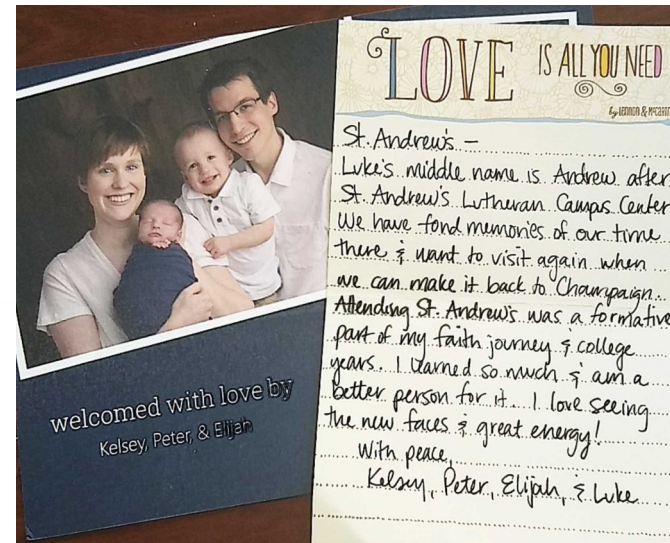 welcomed with love by
Kelsey, Peter, & Elijah
LOVE IS ALL YOU NEED
by LENNON &
St. Andrew's —
Luke's middle name is Andrew after
St. Andrew's Lutheran Campus Center
We have fond memories of our time
there & want to visit again when
we can make it back to Champaign.
Attending St. Andrew's was a formative
part of my faith journey & college
years. I learned so much & am a
better person for it. I love seeing
the new faces & great energy!
With peace,
Kelsey, Peter, Elijah, & Luke